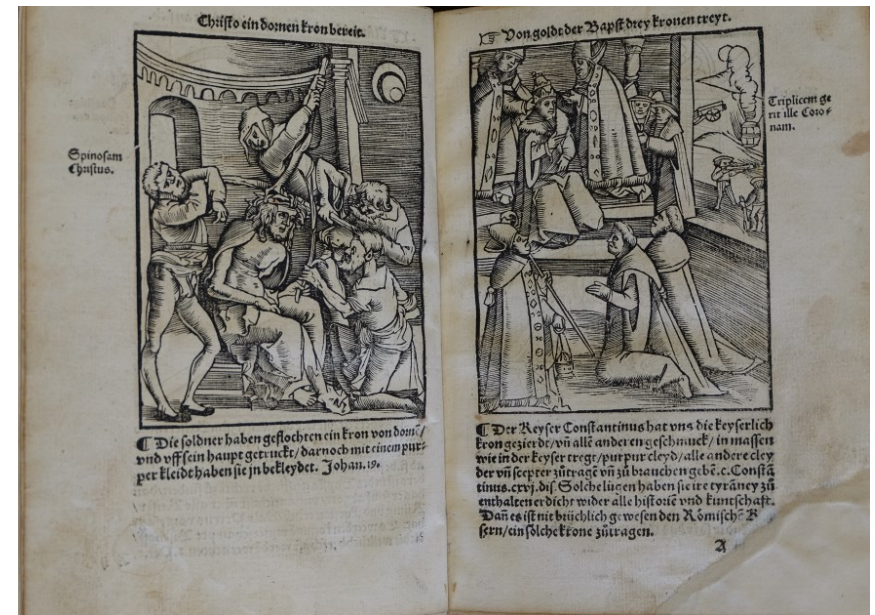 Christo ein dornen kron bereit.
Spinosam
Christus.
¶ Die soldner haben geflochten ein kron von dornē/
vnd vff sein haupt getruckt/darnoch mit einem pur-
per kleidt haben sie jn bekleydet. Johan.19.
☞ Von goldt der Bapst drey kronen treyt.
Triplicem ge
rit ille Coro-
nam.
¶ Der Keyser Constantinus hat vns die keyserlich
kron gezierdt/vñ allē anderen geschmuck/in massen
wie in der keyser tregt/purpur cleyd/alle andere cley
der vñ scepter zůtragē vñ zů brauchen gebē.c. Constā
tinus.xcvj.dis. Solche lügen haben sie ire tyrāney zů
enthalten erdicht wider alle historiē vnd kuntschaft.
Dañ es ist nit brüchlich gewesen den Römischē K
sern/ein solche krone zůtragen.
A